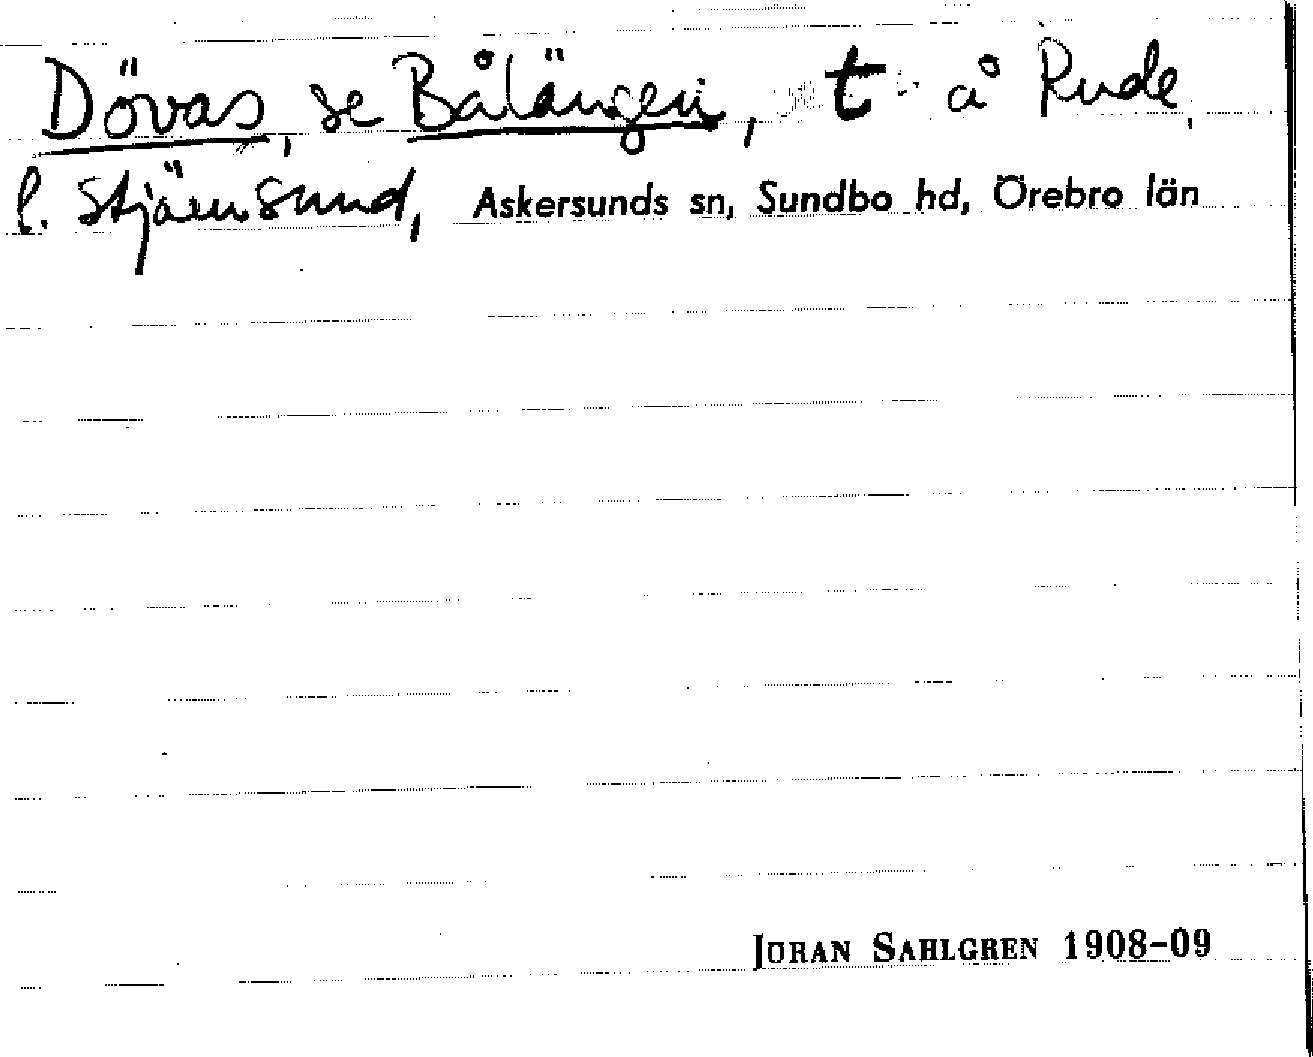 Dövas, se Bålängen, t å Rude,
l. Stjärnsund, Askersunds sn, Sundbo hd, Örebro län
JÖRAN SAHLGREN 1908-09